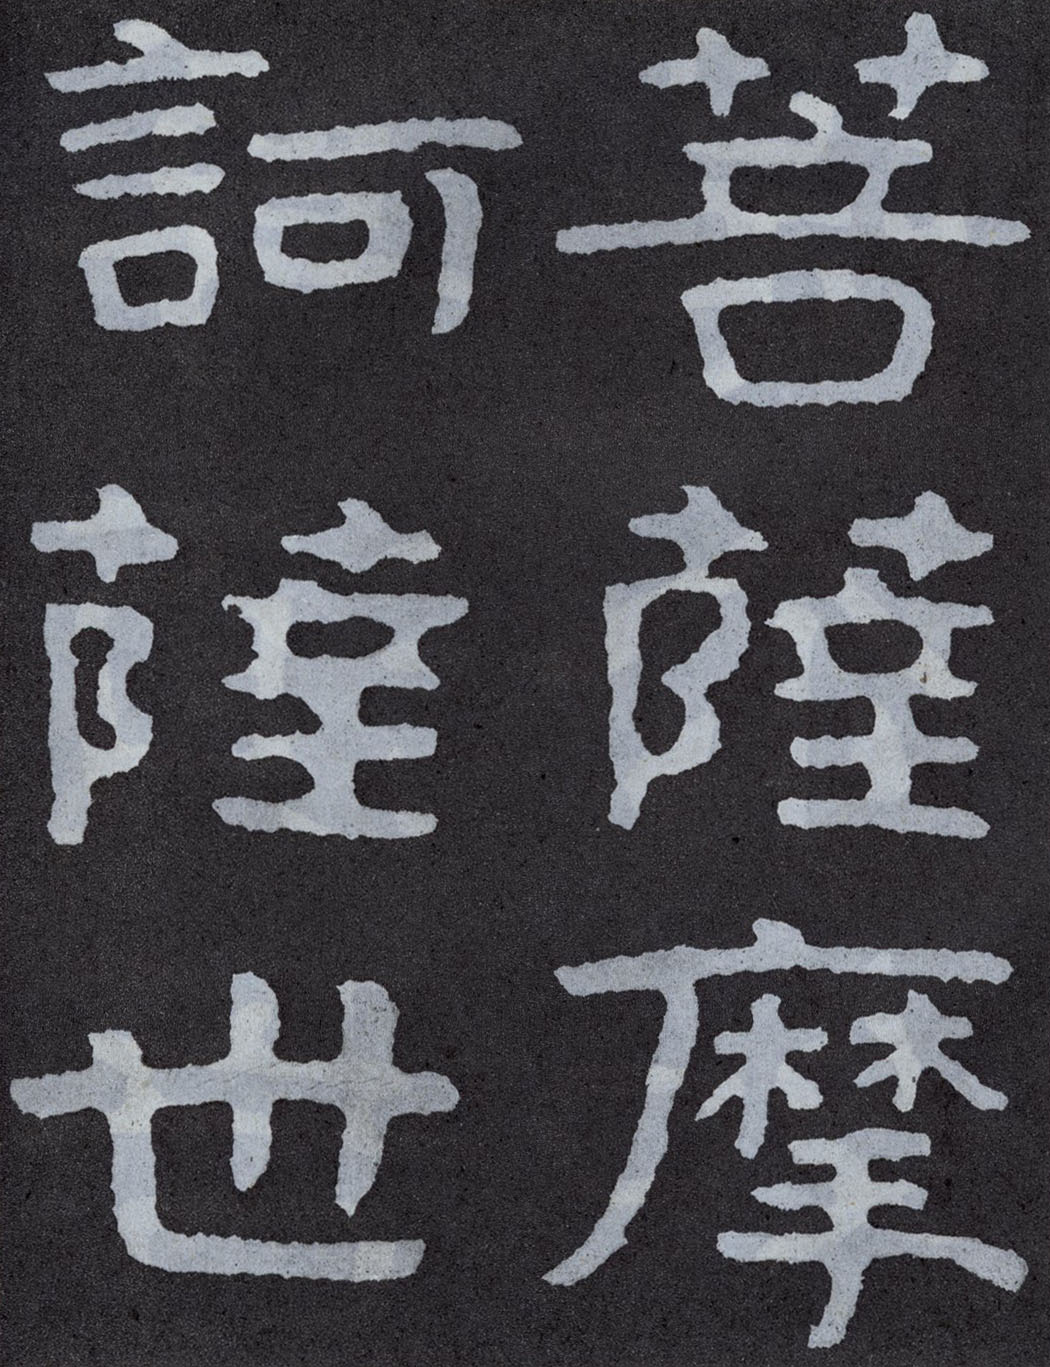 菩薩摩
訶薩世